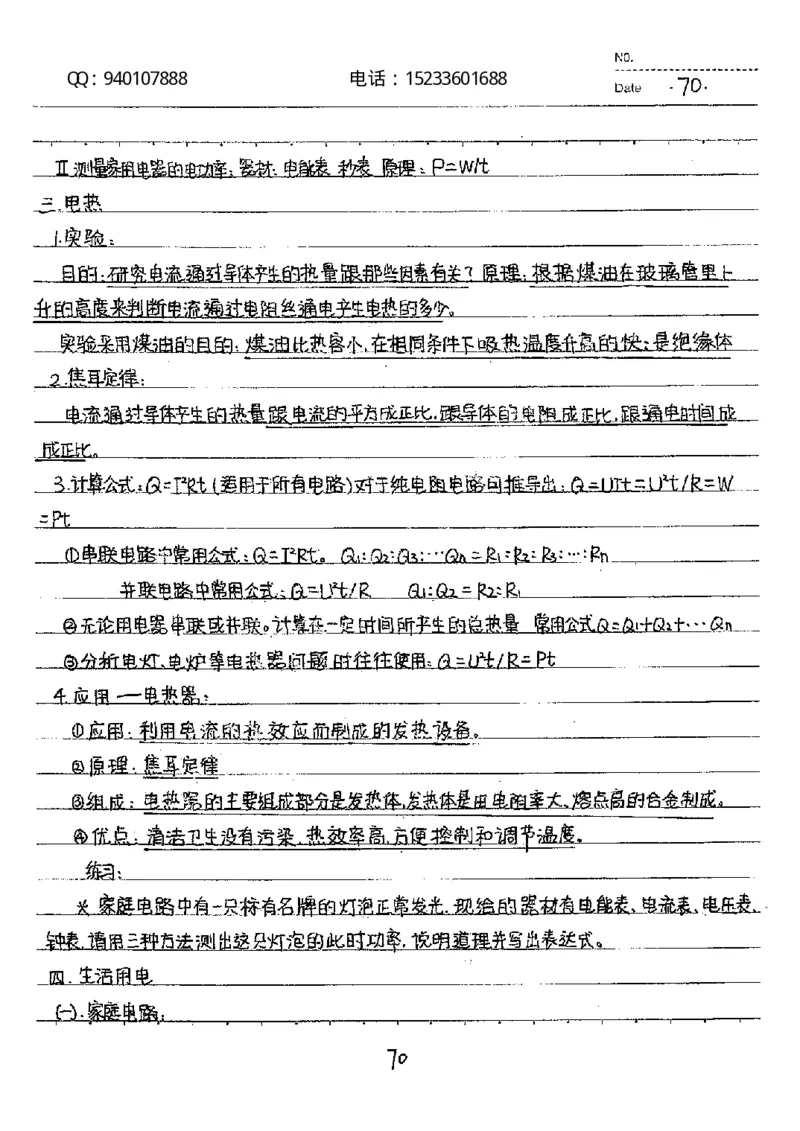 NO.
QQ：940107888 电话：15233601688
Date ·70·
Ⅱ测量家用电器的电功率：器材：电能表 秒表 原理：P=W/t
三.电热
1.实验：
目的：研究电流通过导体产生的热量跟那些因素有关？原理：根据煤油在玻璃管里上
升的高度来判断电流通过电阻丝通电产生电热的多少。
实验采用煤油的目的：煤油比热容小，在相同条件下吸热温度升高的快；是绝缘体
2.焦耳定律：
电流通过导体产生的热量跟电流的平方成正比，跟导体的电阻成正比，跟通电时间成
成正比。
3.计算公式：Q=I²Rt(适用于所有电路)对于纯电阻电路可推导出：Q=UIt=U²t/R=W
=Pt
①串联电路中常用公式：Q=I²Rt。Q₁:Q₂:Q₃:…Qn=R₁:R₂:R₃:…:Rn
并联电路中常用公式：Q=U²t/R Q₁:Q₂=R₂:R₁
②无论用电器串联或并联。计算在一定时间所产生的总热量 常用公式Q=Q₁+Q₂+…Qn
③分析电灯、电炉等电热器问题时往往使用：Q=U²t/R=Pt
4.应用——电热器：
①应用：利用电流的热效应而制成的发热设备。
②原理：焦耳定律
③组成：电热器的主要组成部分是发热体，发热体是由电阻率大、熔点高的合金制成。
④优点：清洁卫生没有污染、热效率高、方便控制和调节温度。
练习：
※ 家庭电路中有一只标有名牌的灯泡正常发光，现给的器材有电能表、电流表、电压表、
钟表，请用三种方法测出这只灯泡的此时功率，说明道理并写出表达式。
四.生活用电
(一).家庭电路：
70